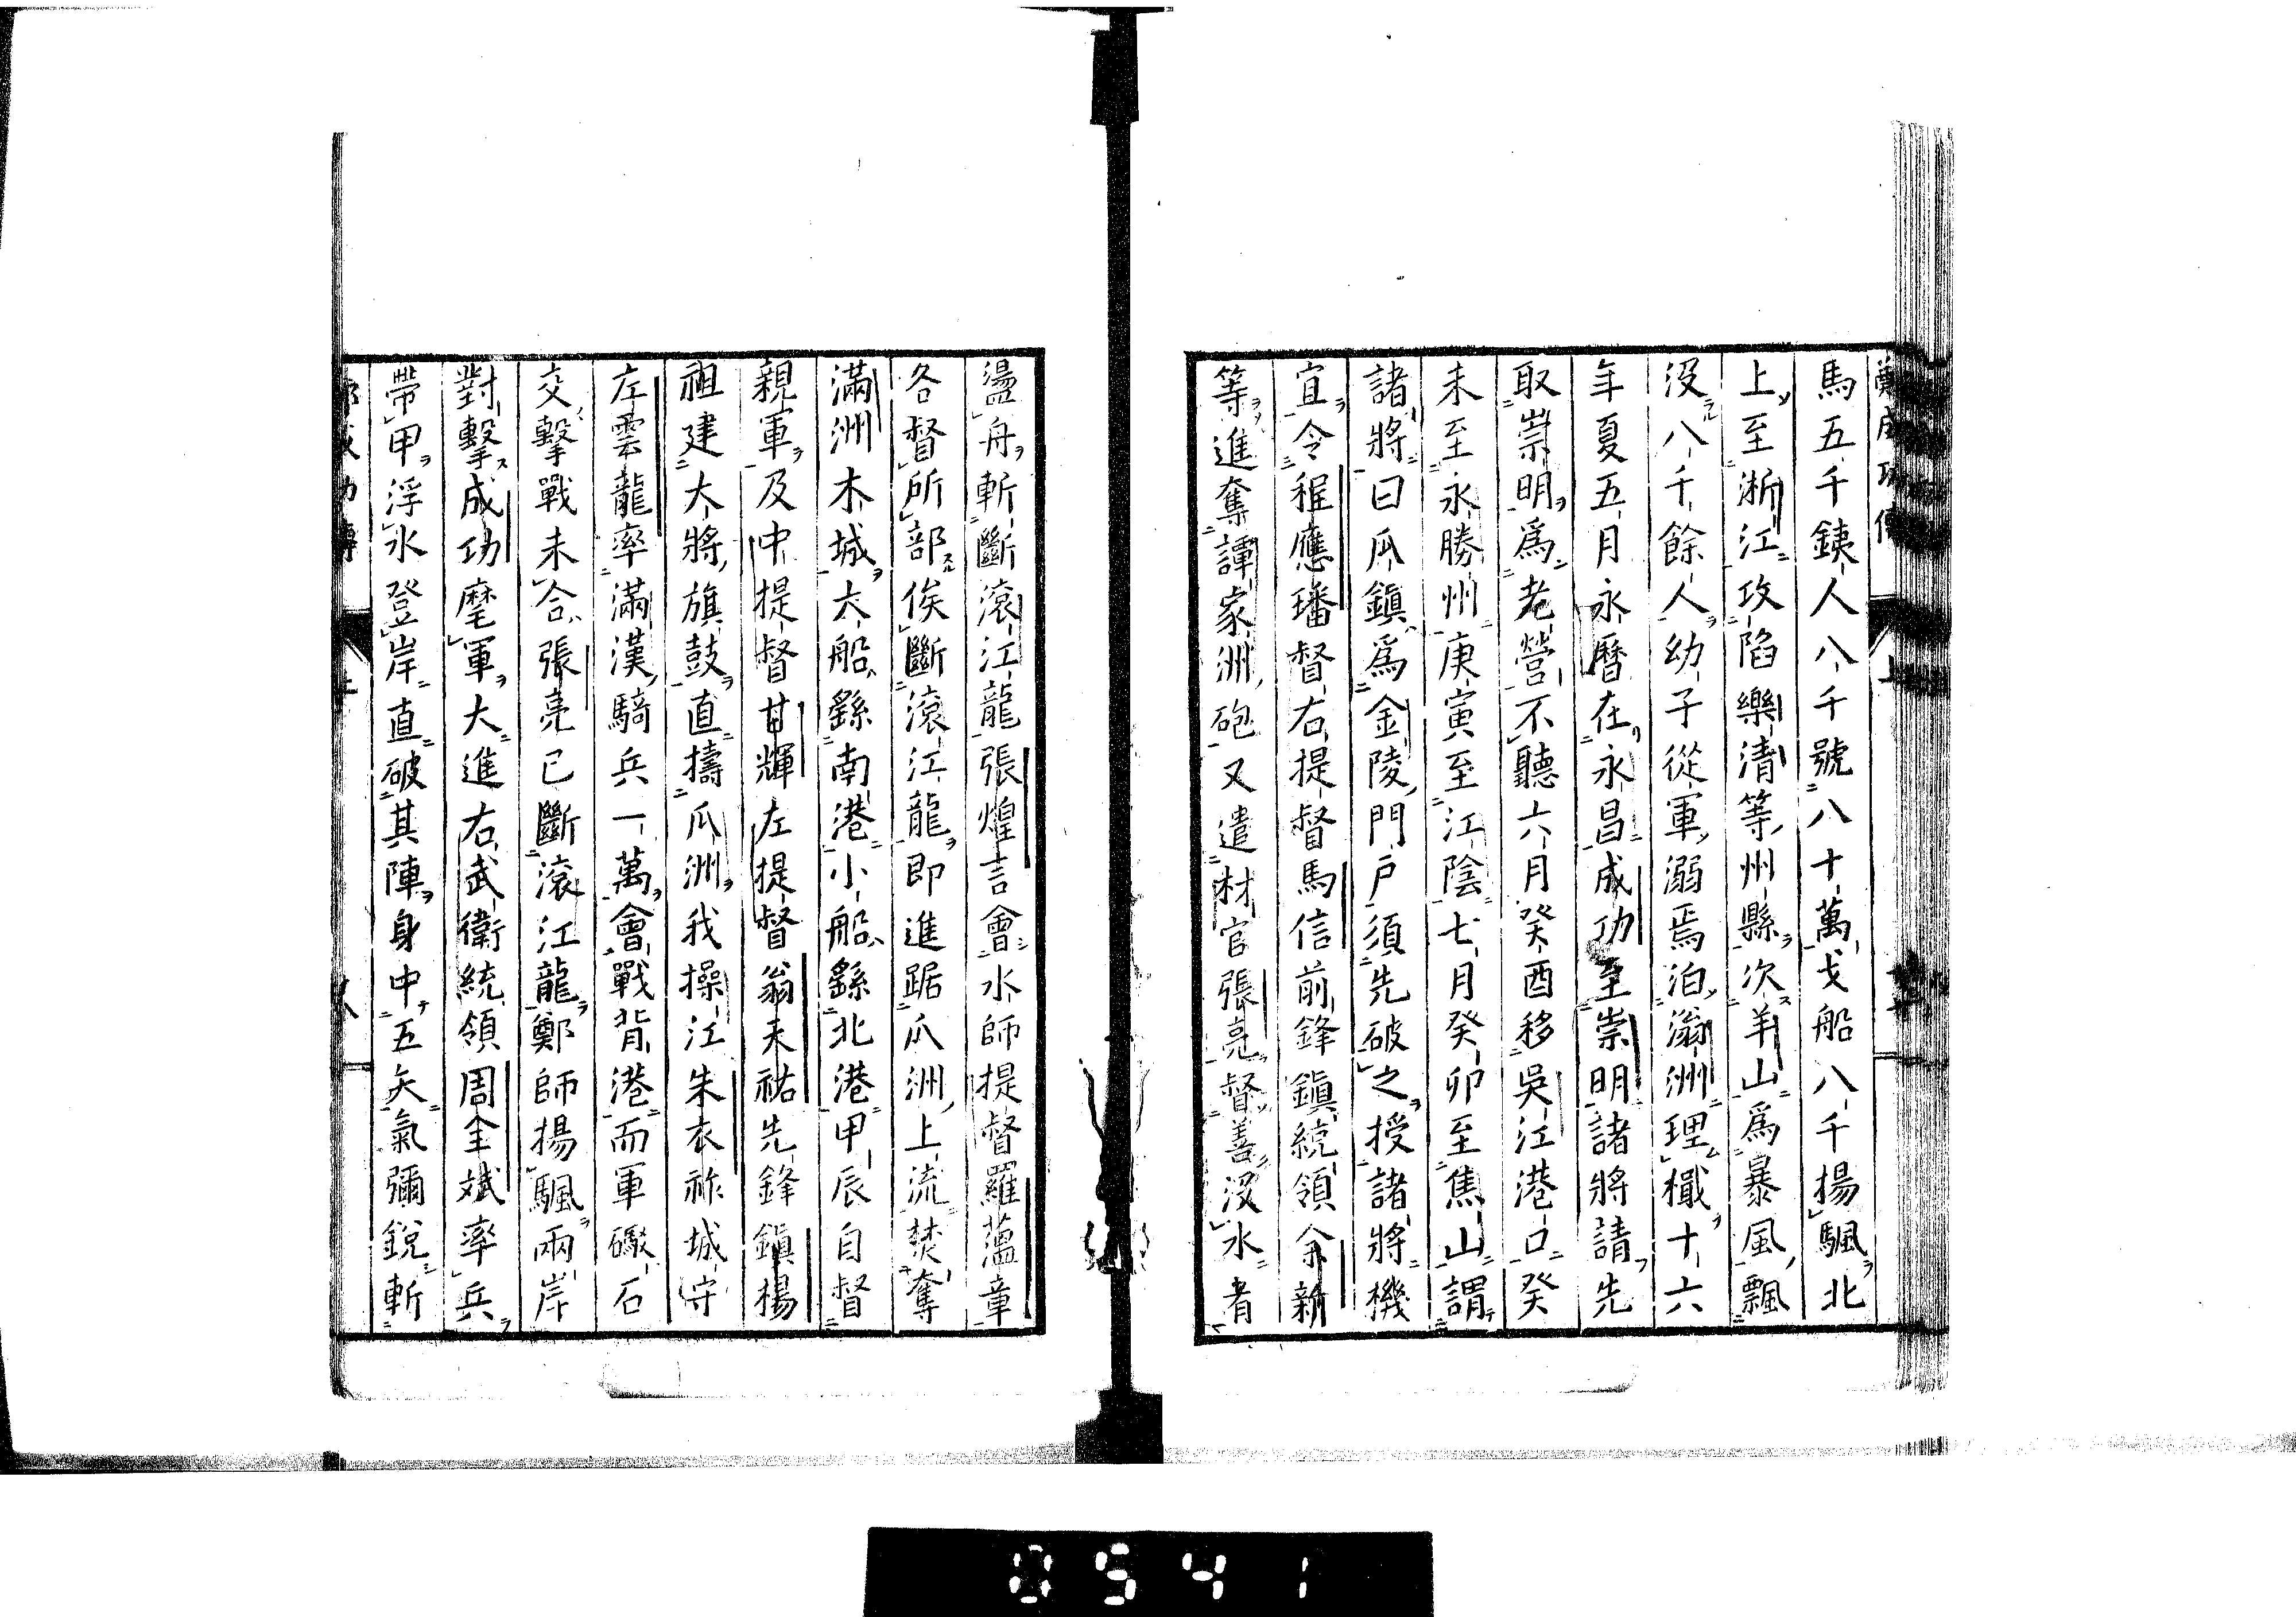 馬五千鐵人八千號八十萬戈船八千揚颿北
上至浙江攻陷樂清等州縣次羊山爲暴風飄
没八千餘人幼子從軍溺焉泊滃洲理檥十六
年夏五月永曆在永昌成功至崇明諸將請先
取崇明爲老營不聽六月癸酉移吳江港口癸
未至永勝州庚寅至江陰七月癸卯至焦山謂
諸將曰瓜鎮爲金陵門戶須先破之授諸將機
宜令程應璠督右提督馬信前鋒鎮統領余新
等進奪譚家洲砲又遣材官張亮督善没水者
盪舟斬斷滾江龍張煌言會水師提督羅蘊章
各督所部俟斷滾江龍即進踞瓜洲上流焚奪
滿洲木城大船繇南港小船繇北港甲辰自督
親軍及中提督甘輝左提督翁天祐先鋒鎮楊
祖建大將旗鼓直擣瓜洲我操江朱衣祚城守
左雲龍率滿漢騎兵一萬會戰背港而軍礮石
交擊戰未合張亮已斷滾江龍鄭師揚颿兩岸
對擊成功麾軍大進右武衛統領周全斌率兵
帶甲浮水登岸直破其陣身中五矢氣彌銳斬
0541